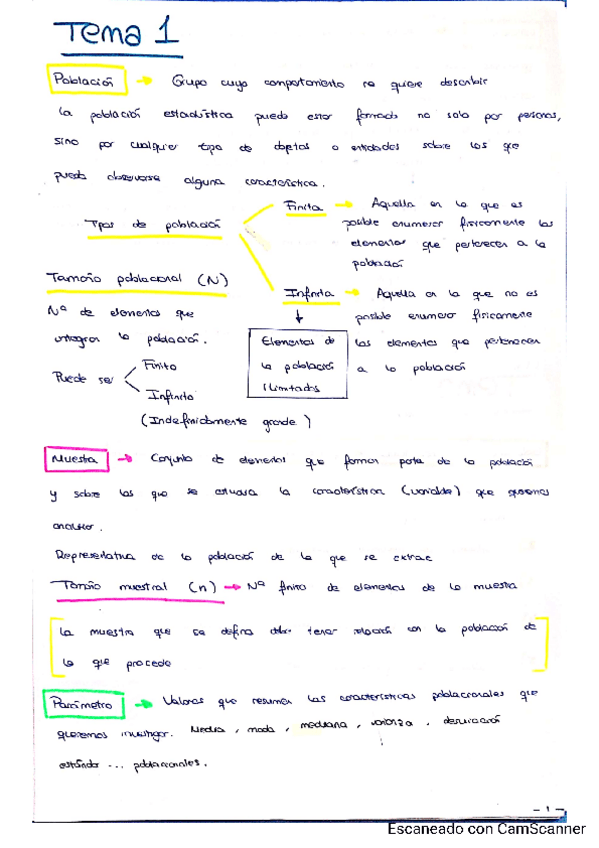 Tema 1
Población → Grupo cuyo comportamiento se quiere describir
la población estadística puede estar formada no solo por personas,
sino por cualquier tipo de objetos o entidades sobre los que
pueda observarse alguna característica.
Tipos de población
Finita → Aquella en la que es
posible enumerar físicamente los
elementos que pertenecen a la
población
Infinita → Aquella en la que no es
posible enumerar físicamente
los elementos que pertenecen
a la población
Elementos de
la población
ilimitados
Tamaño poblacional (N)
Nº de elementos que
integran la población.
Puede ser
Finito
Infinito
(Indefinidamente grande)
Muestra → Conjunto de elementos que forman parte de la población
y sobre los que se estudia la característica (variable) que queremos
analizar.
Representativa de la población de la que se extrae
Tamaño muestral (n) → Nº finito de elementos de la muestra
la muestra que se defina debe tener relación con la población de
la que procede
Parámetro → Valores que resumen las características poblacionales que
queremos investigar. Media, moda, mediana, varianza, desviación
estándar ... poblacionales.
- 1 -
Escaneado con CamScanner